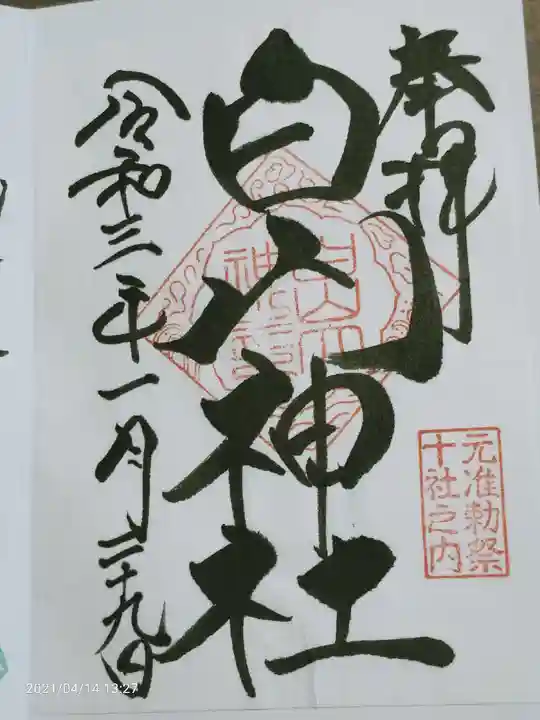 奉拝
白山神社
令和三年一月二十九日
元准勅祭
十社之内
2021/04/14 13:27